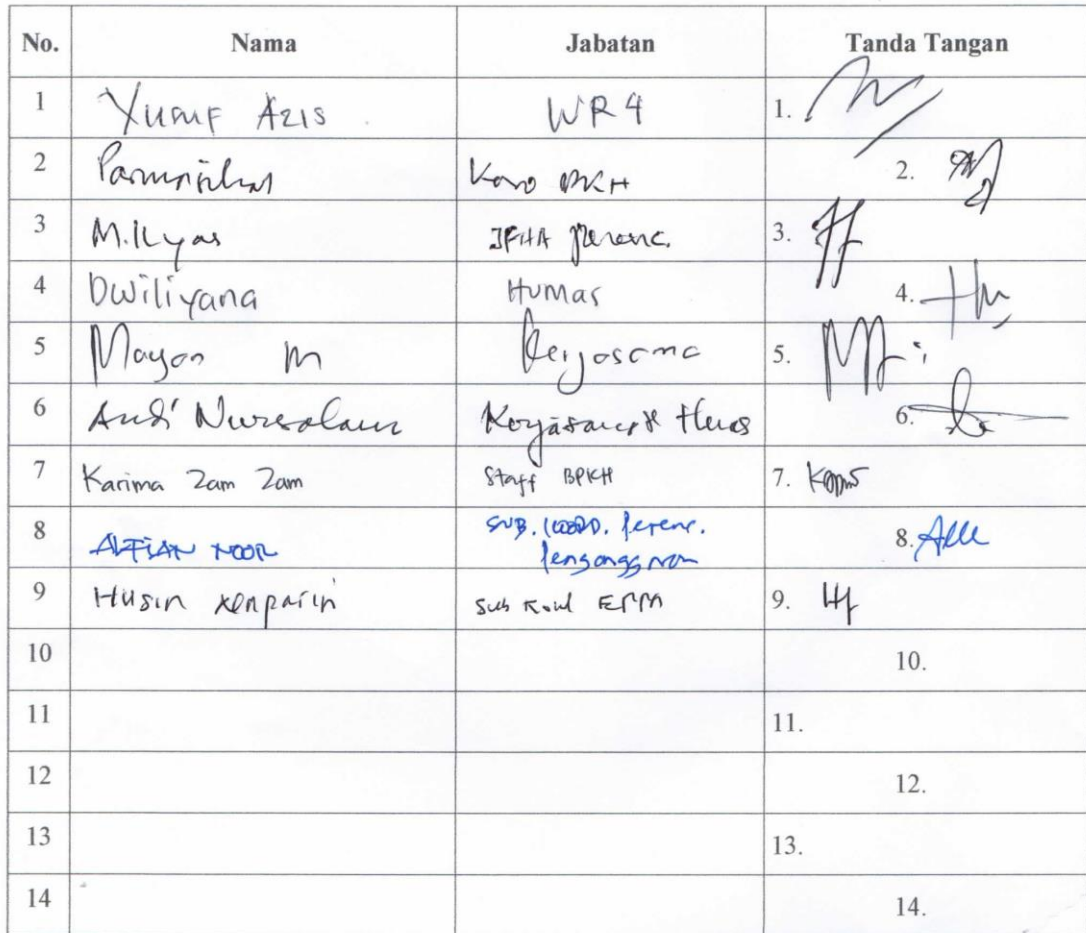 No. Nama Jabatan Tanda Tangan
1 Yusuf Azis WR 4 1.
2 Karo BPKH 2.
3 M. Ilyas JFHA Perenc. 3.
4 Dwiliyana Humas 4.
5 Mayan M Kerjasama 5.
6 Andi Nursalam Kerjasama & Humas 6.
7 Karima Zam Zam Staff BPKH 7.
8 ALFIAN NOOR SUB. KOORD. Perenc. 8.
Penganggaran
9 Husin Sub Koord 9.
10 10.
11 11.
12 12.
13 13.
14 14.